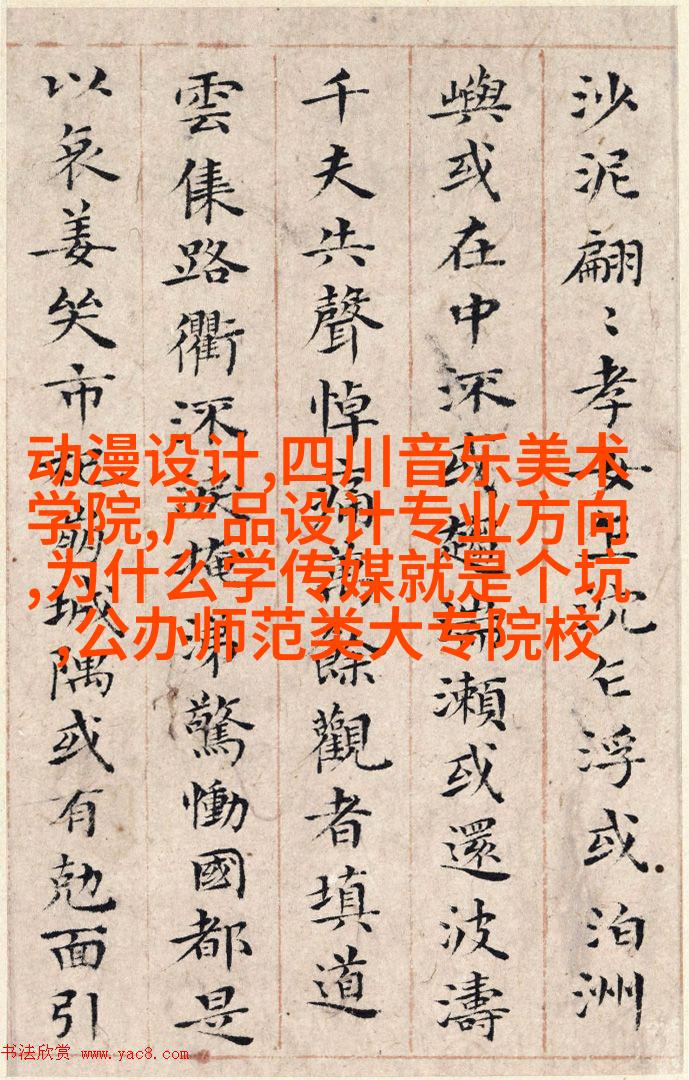 沙泥翩〻孝女乍沉乍浮或泊洲
嶼或在中㳅或趨湍瀨或還波濤
千夫失聲悼痛萬餘觀者填道
雲集路衢㳅淚掩涕驚慟國都是
以哀姜哭市杞崩城隅或有尅面引
动漫设计,四川音乐美术
学院,产品设计专业方向
,为什么学传媒就是个坑
,公办师范类大专院校
书法欣赏 www.yac8.com